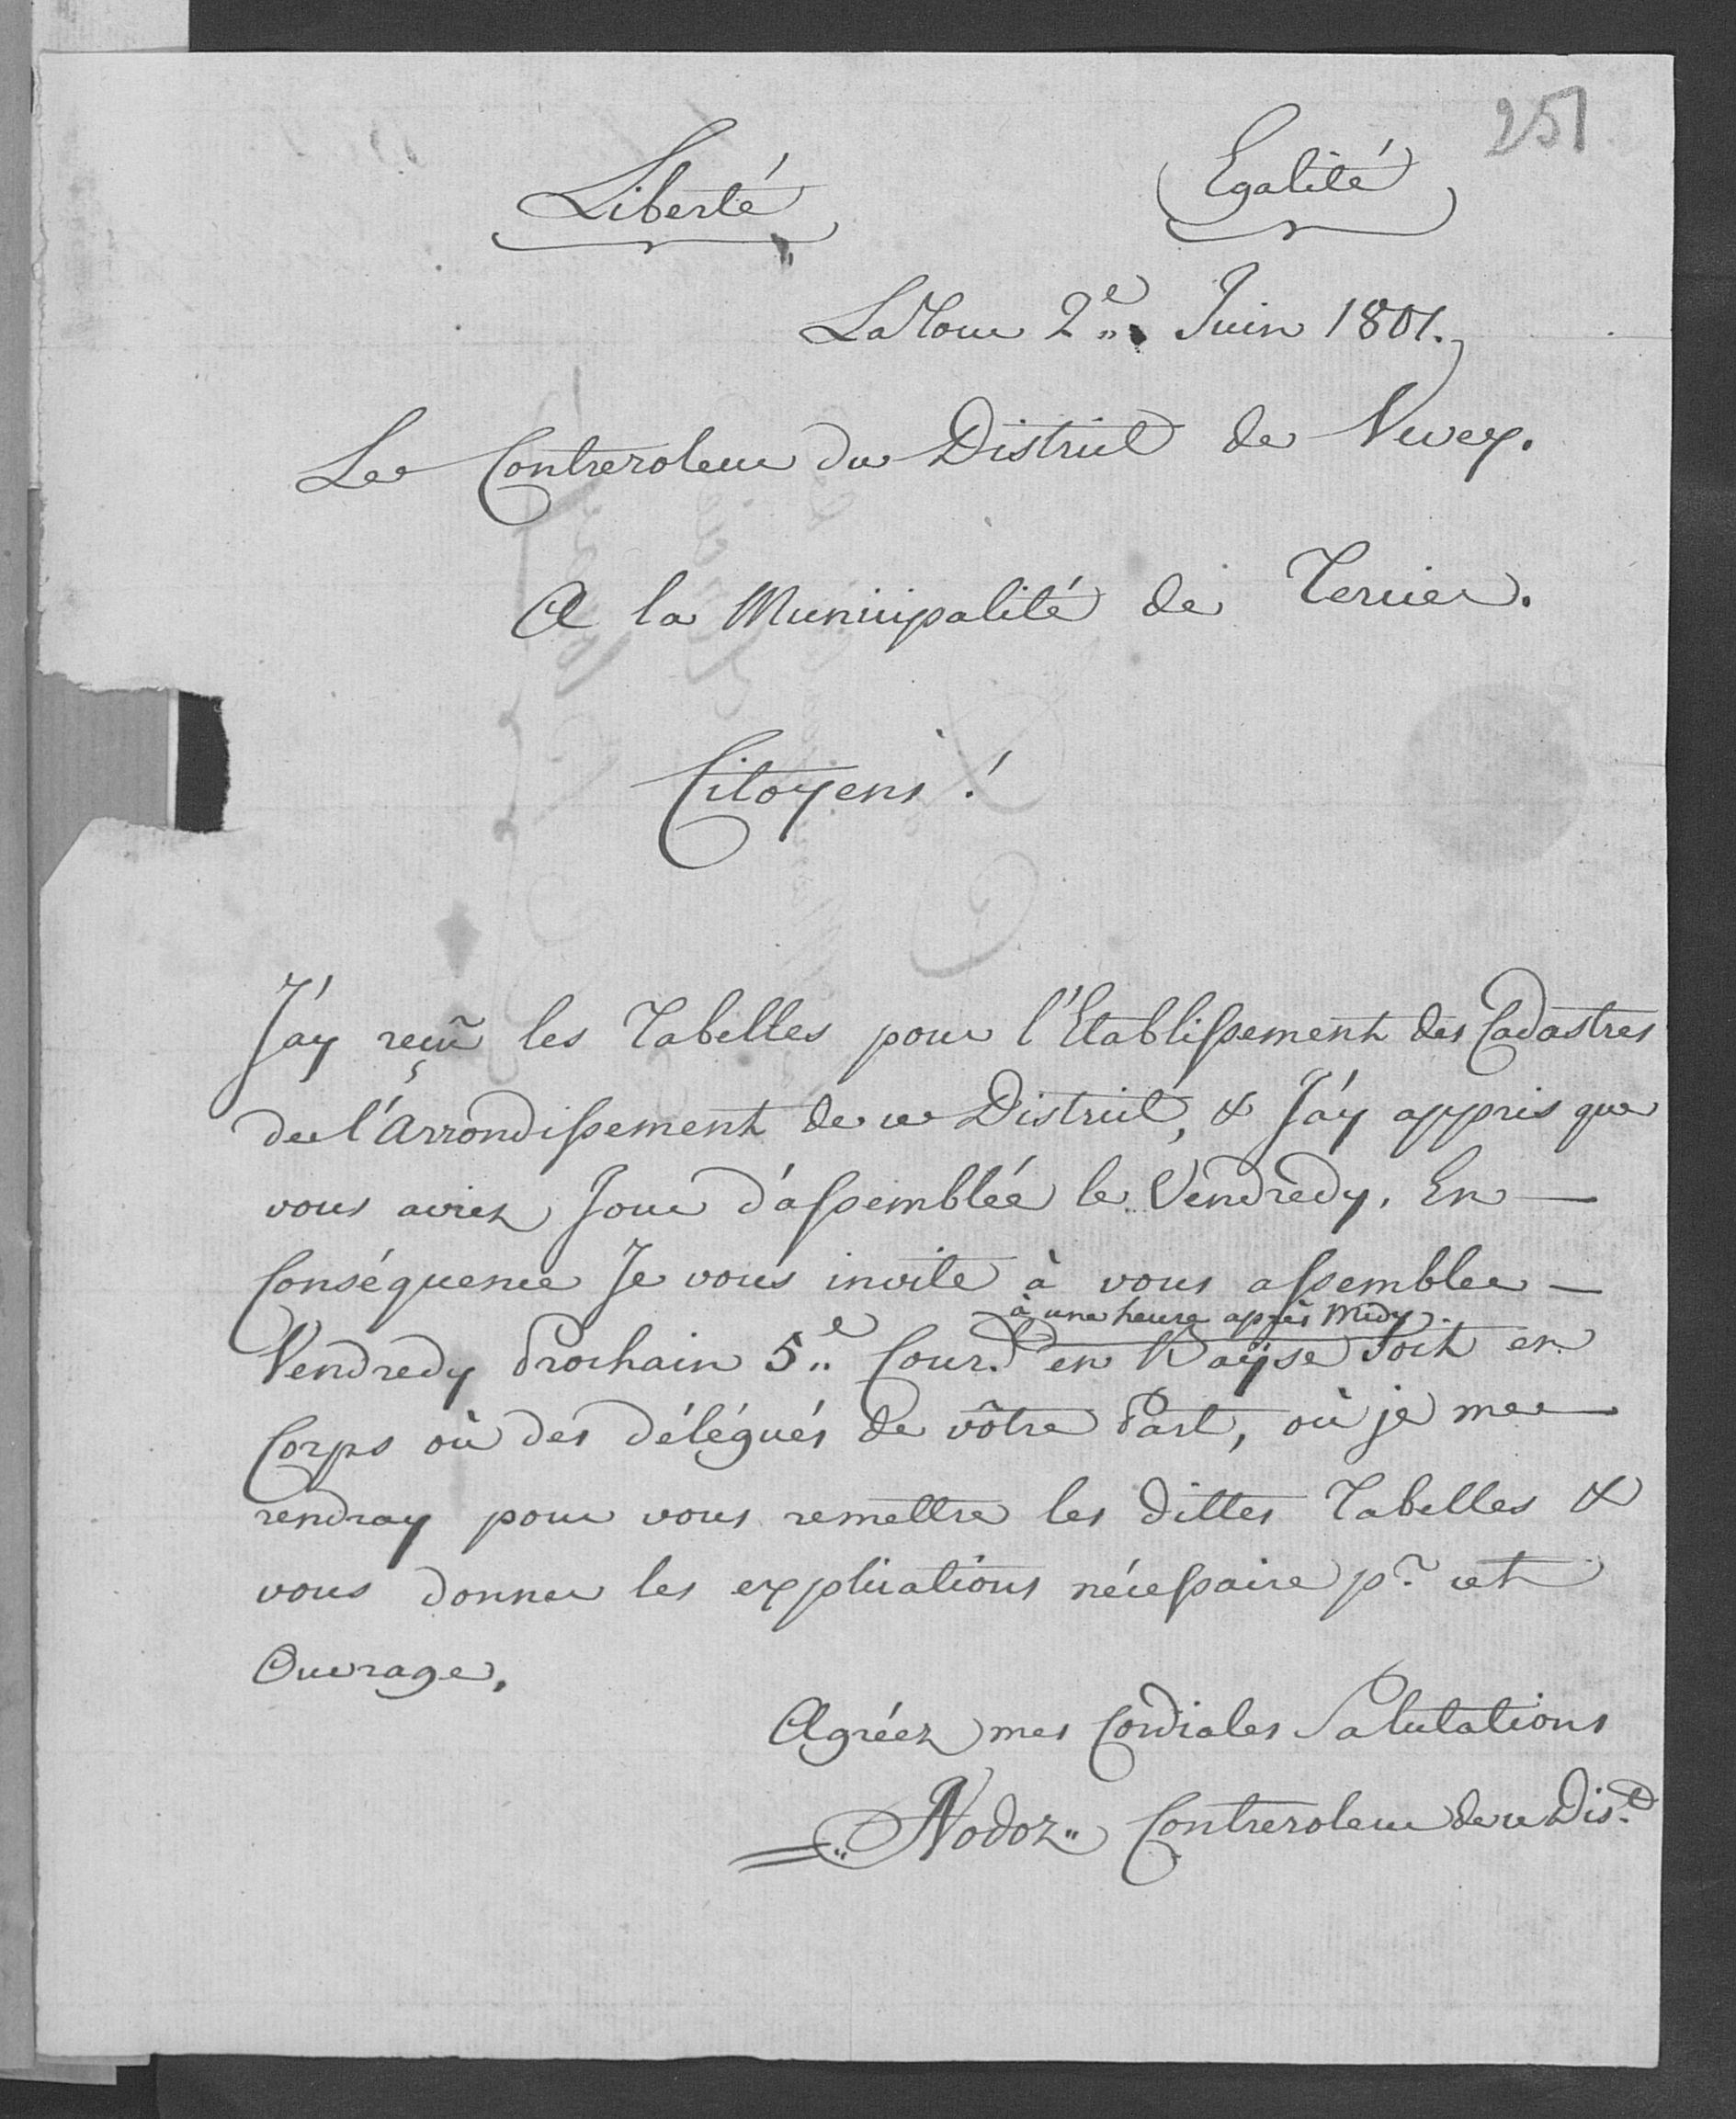 251
Liberté Egalité
LaTour 2e Juin 1801.
Le Contreroleur du District de Vevey.
A la Municipalité de
Citoyens !
J'ay reçu les Tabelles pour l'Etablissement des Cadastres
de l'Arrondissement de ce District, & J'ay appris que
vous aviez Jour d'assemblée le Vendredy. En
Conséquence Je vous invite à vous assembler
à une heure après Midy.
Vendredy Prochain 5e Cour.t en soit en
Corps où des délégués de vôtre Part, où je me
rendray pour vous remettre les dittes Tabelles &
vous donner les explications nécessaire pr cet
Ouvrage.
Agréez mes Cordiales Salutations
Nodoz Contreroleur de ce Dis.t